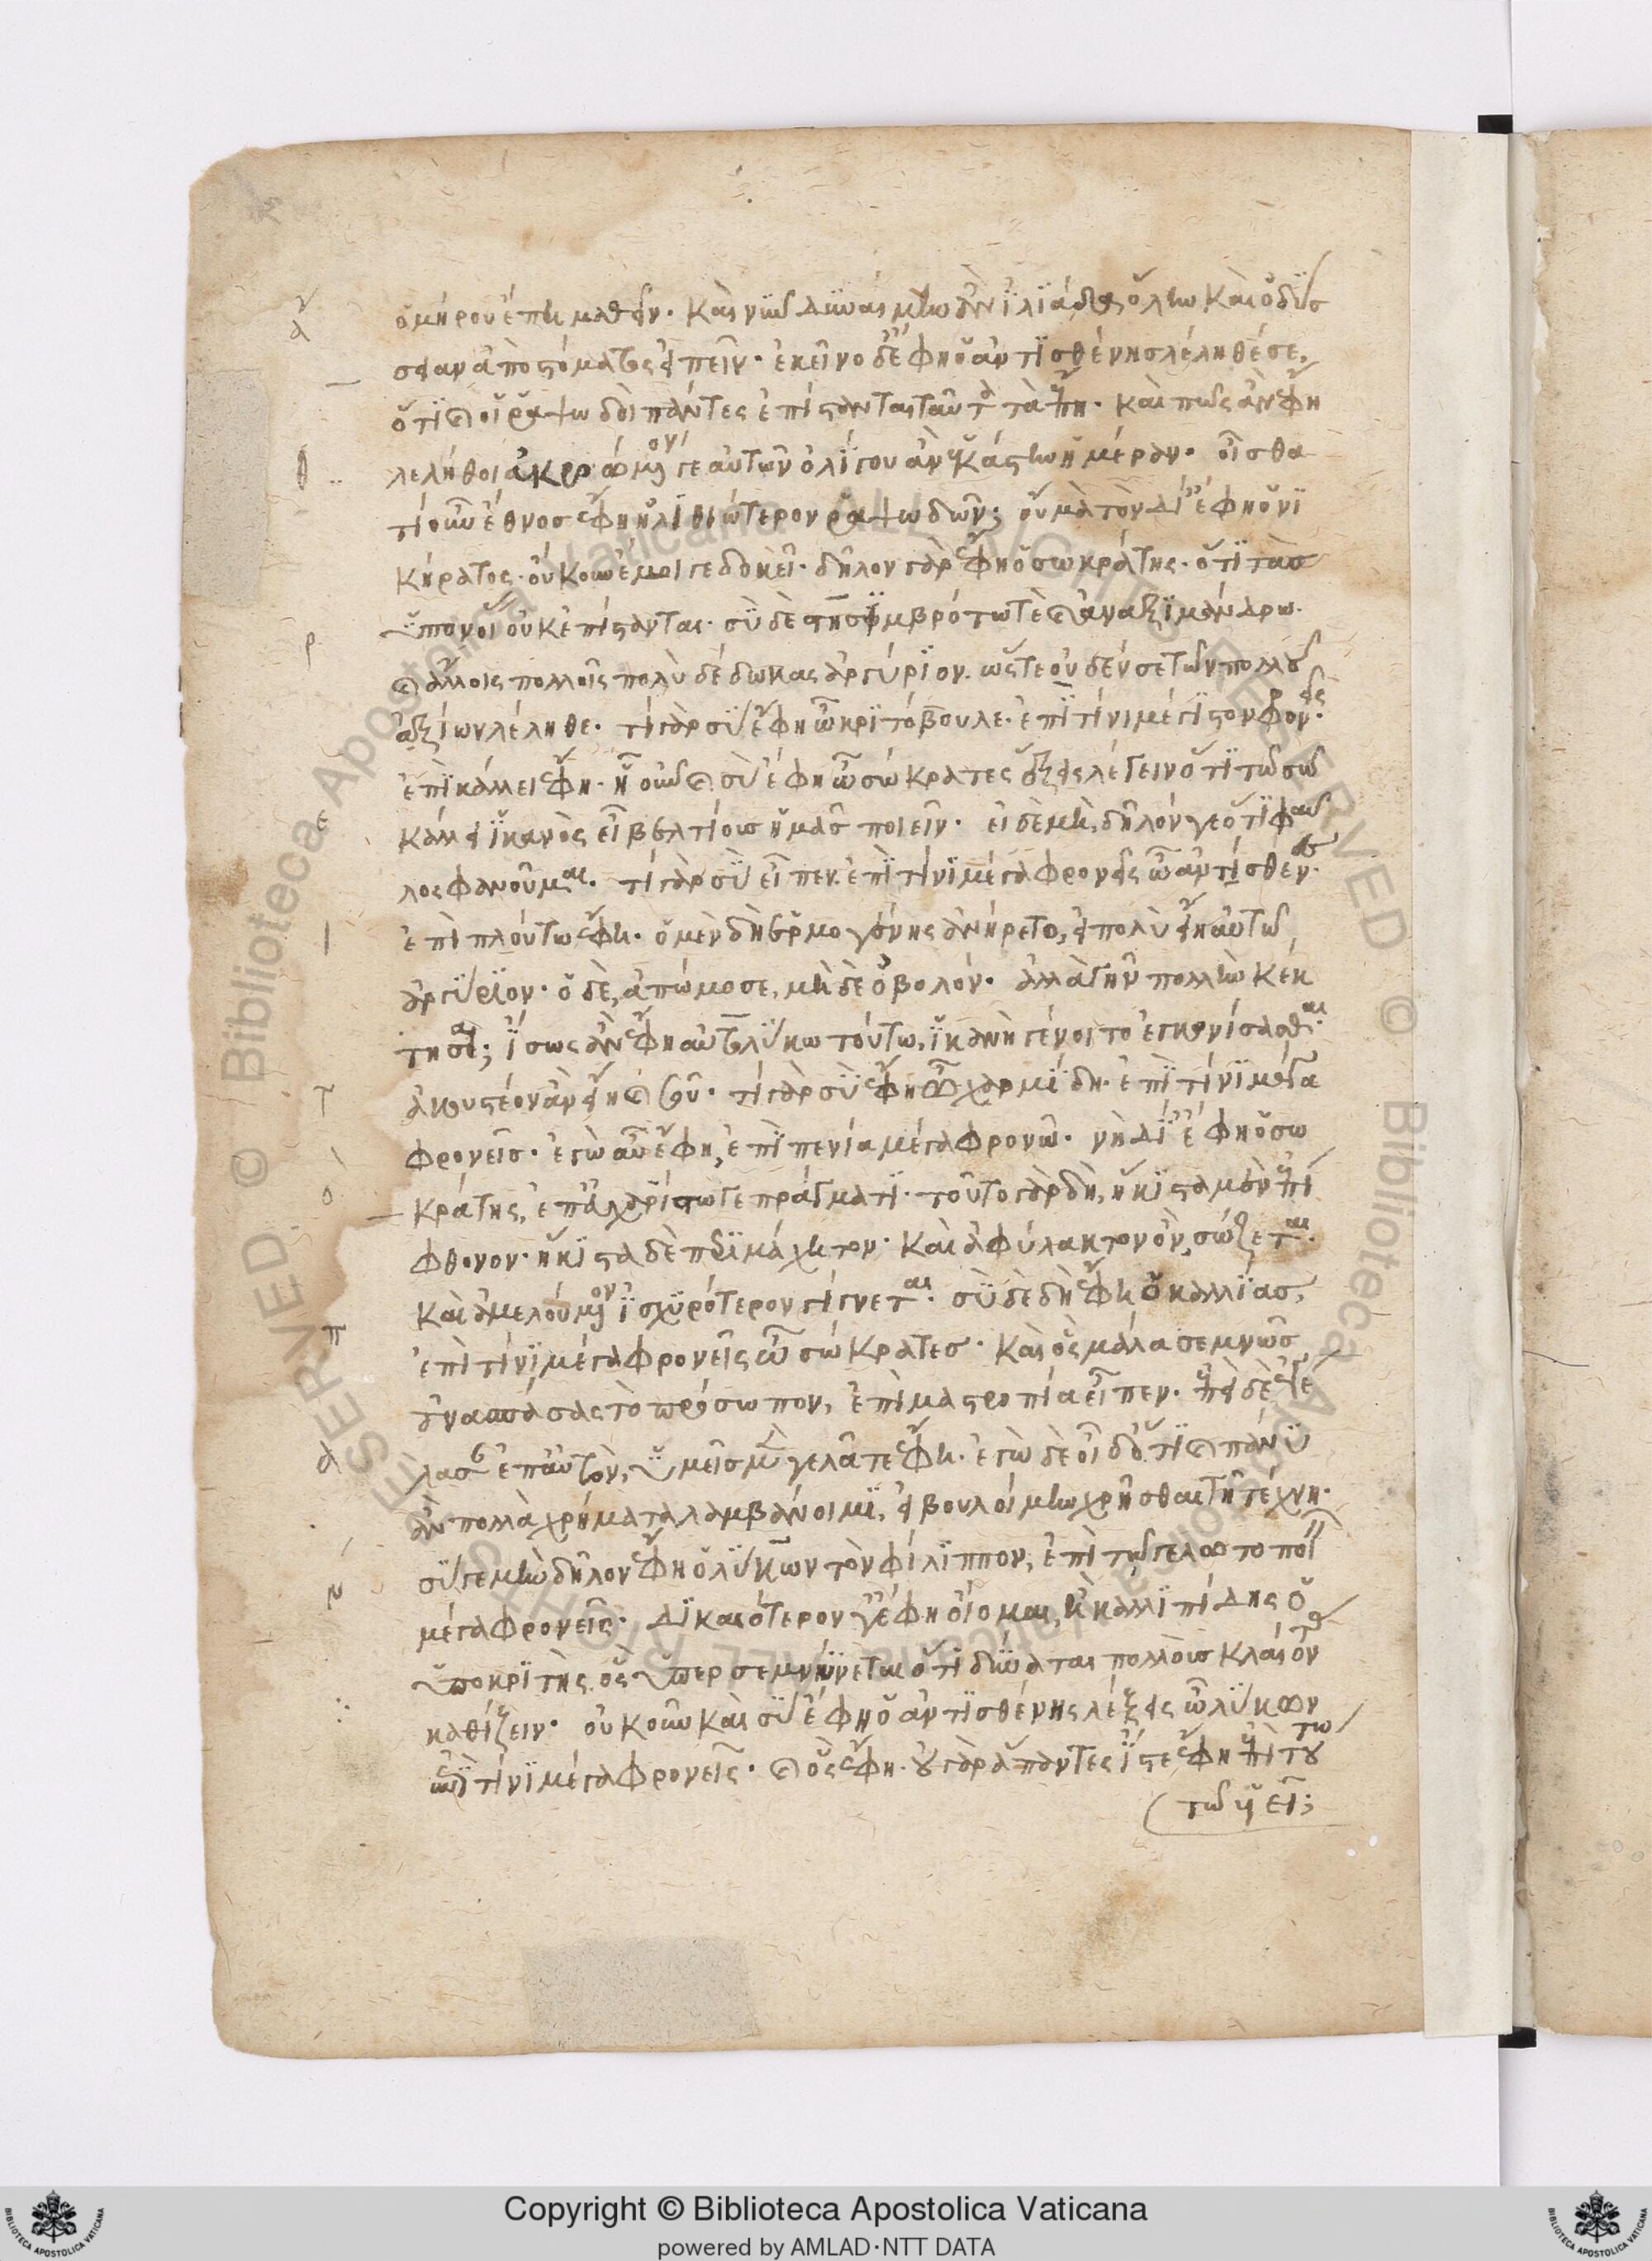 ὁμήρου ἔπη μαθεῖν· καὶ νῦν δυναίμην ἂν ἰλιάδα ὅλην καὶ ὀδύσ
σειαν ἀπὸ στόματος εἰπεῖν· ἐκεῖνο δὲ ἔφη ὁ ἀντισθένης λέληθέ σε,
ὅτι καὶ οἱ ῥαψωδοὶ πάντες ἐπίστανται ταῦτα τὰ ἔπη· καὶ πῶς ἂν ἔφη
λελήθοι ἀκροώμενόν γε αὐτῶν ὀλίγου ἀν' ἑκάστην ἡμέραν· οἶσθα
τί οὖν ἔθνος ἔφη ἠλιθιώτερον ῥαψωδῶν; οὐ μὰ τὸν δί' ἔφη ὁ νι
κήρατος· οὔκουν ἔμοιγε δοκεῖ· δῆλον γὰρ ἔφη ὁ σωκράτης· ὅτι τὰς
ὑπονοίας οὐκ ἐπίστανται· σὺ δὲ στησιμβρότω τὲ καὶ ἀναξιμάνδρω
καὶ ἄλλοις πολλοῖς πολὺ δέδωκας ἀργύριον. ὥστε οὐδέν σε τῶν πολλοῦ
ἀξίων λέληθε· τί γὰρ σὺ ἔφη ὦ κριτόβουλε· ἐπὶ τίνι μέγιστον φρονεῖς·
ἐπὶ κάλλει ἔφη· ἦ οὖν καὶ σὺ ἔφη ὦ σώκρατες ἕξεις λέγειν ὅτι τῶ σῶ
κάλλει ἱκανὸς εἶ βελτίους ἡμᾶς ποιεῖν· εἰ δὲ μὴ, δῆλόν γε ὅτι φαῦ
λος φανοῦμαι· τί γὰρ σὺ εἶπεν· ἐπὶ τίνι μέγα φρονεῖς ὦ ἀντίσθενες·
ἐπὶ πλούτω ἔφη· ὁ μὲν δὴ ἑρμογένης ἀνήρετο, εἰ πολὺ εἴη αὐτῶ
ἀργύριον· ὁ δὲ, ἀπώμοσε, μὴ δὲ ὀβολόν· ἀλλὰ γῆν πολλὴν κέκ
τησαι; ἴσως ἂν ἔφη αὐτολύκω τούτω, ἱκανὴ γένοιτο ἐγκονίσασθαι·
ἀκουστέον ἂν εἴη καὶ σοῦ· τί γὰρ σὺ ἔφη ὦ χαρμίδη· ἐπὶ τίνι μέγα
φρονεῖς· ἐγὼ αὖ ἔφη, ἐπὶ πενία μέγα φρονῶ· νὴ δί' ἔφη ὁ σω
κράτης, ἐπ' εὐχαρίστω γε πράγματι· τοῦτο γὰρ δὴ, ἥκιστα μὲν ἐπί
φθονον· ἥκιστα δὲ περιμάχητον· καὶ ἀφύλακτον ὂν, σώζεται·
καὶ ἀμελούμενον ἰσχυρότερον γίγνεται· σὺ δὲ δὴ ἔφη ὁ καλλίας,
ἐπὶ τίνι μέγα φρονεῖς ὦ σώκρατες· καὶ ὃς μάλα σεμνῶς
ἀνασπάσας τὸ πρόσωπον, ἐπὶ μαστροπία εἶπεν· ἐπεὶ δὲ ἐγέ
λασαν ἐπ' αὐτὸν, ὑμεῖς μὲν γελᾶτε ἔφη· ἐγὼ δὲ οἶδ' ὅτι καὶ πάνυ
ἂν πολλὰ χρήματα λαμβάνοιμι, εἰ βουλοίμην χρῆσθαι τῆ τέχνη·
σύ γε μὴν δῆλον ἔφη ὁ λύκων τὸν φίλιππον, ἐπὶ τῶ γελωτοποιεῖν
μέγα φρονεῖς· δικαιότερον γ' ἔφη οἴομαι, ἢ καλλιπίδης ὁ
ὑποκριτὴς ὃς ὑπερσεμνύνεται ὅτι δύναται πολλοὺς κλαίοντας
καθίζειν· οὐκοῦν καὶ σὺ ἔφη ὁ ἀντισθένης λέξεις ὦ λύκων
ἐπὶ τίνι μέγα φρονεῖς· καὶ ὃς ἔφη· οὐ γὰρ ἅπαντες ἴστε ἔφη ἐπὶ τού
τω τῶ υἱεῖ;